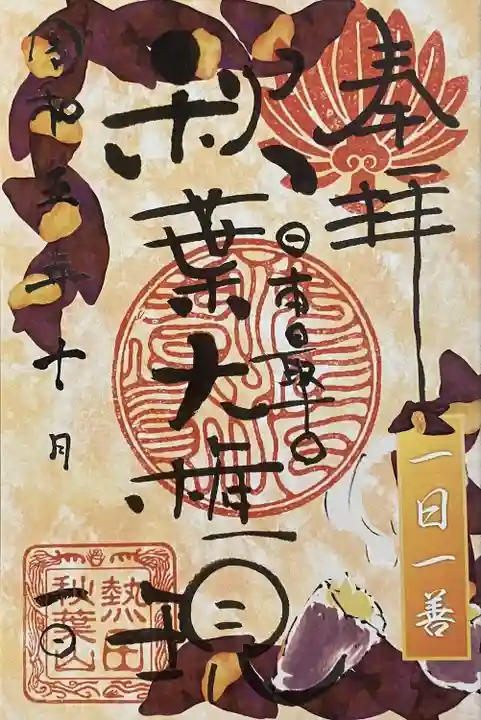 奉拝
秋葉大権現
令和五年十月
一日
熱田
秋葉山
一日一善